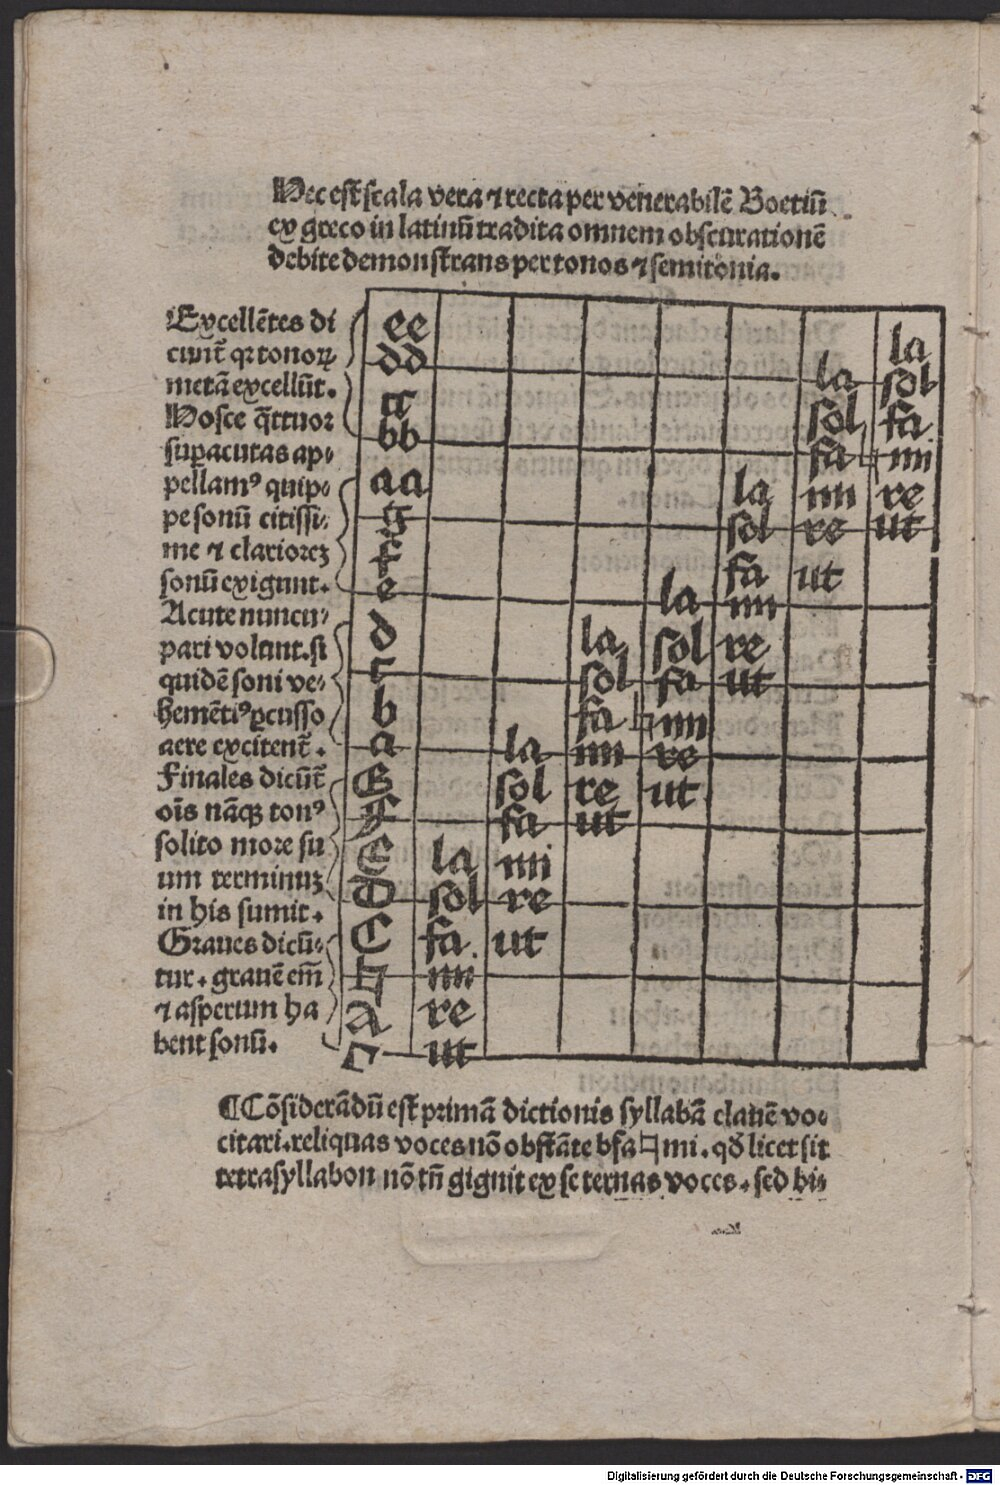 Hec est scala vera ⁊ recta per venerabilē Boetiū
ex greco in latinū tradita omnem obscurationē
debite demonstrans per tonos ⁊ semitonia.
Excellētes di
cunt̄ qꝛ tonoꝝ
metā excellūt.
Hosce q̄ttuor
suꝑacutas ap⸗
pellamꝰ quip⸗
pe sonū citissi⸗
me ⁊ clariorez
sonū exigunt.
Acute nuncu⸗
pari volunt. si
quidē soni ve⸗
hemētiꝰ ꝑcusso
aere excitent̄.
Finales dicūt̄
oīs nāqꝫ tonꝰ
solito more su
um terminuz
in his sumit.
Graues dicū⸗
tur. grauē em̄
⁊ asperum ha
bent sonū.
ee la
dd la sol
cc sol fa
bb fa ♮ mi
aa la mi re
g sol re ut
f fa ut
e la mi
d la sol re
c sol fa ut
b fa ♮ mi
a la mi re
G sol re ut
F fa ut
E la mi
D sol re
C fa ut
♮ mi
A re
Γ ut
¶Cōsiderādū est primā dictionis syllabā clauē vo⸗
citari. reliquas voces nō obstāte bfa♮mi. qd̄ licet sit
tetrasyllabon nō tn̄ gignit ex se ternas voces. sed bi⸗
Digitalisierung gefördert durch die Deutsche Forschungsgemeinschaft - DFG